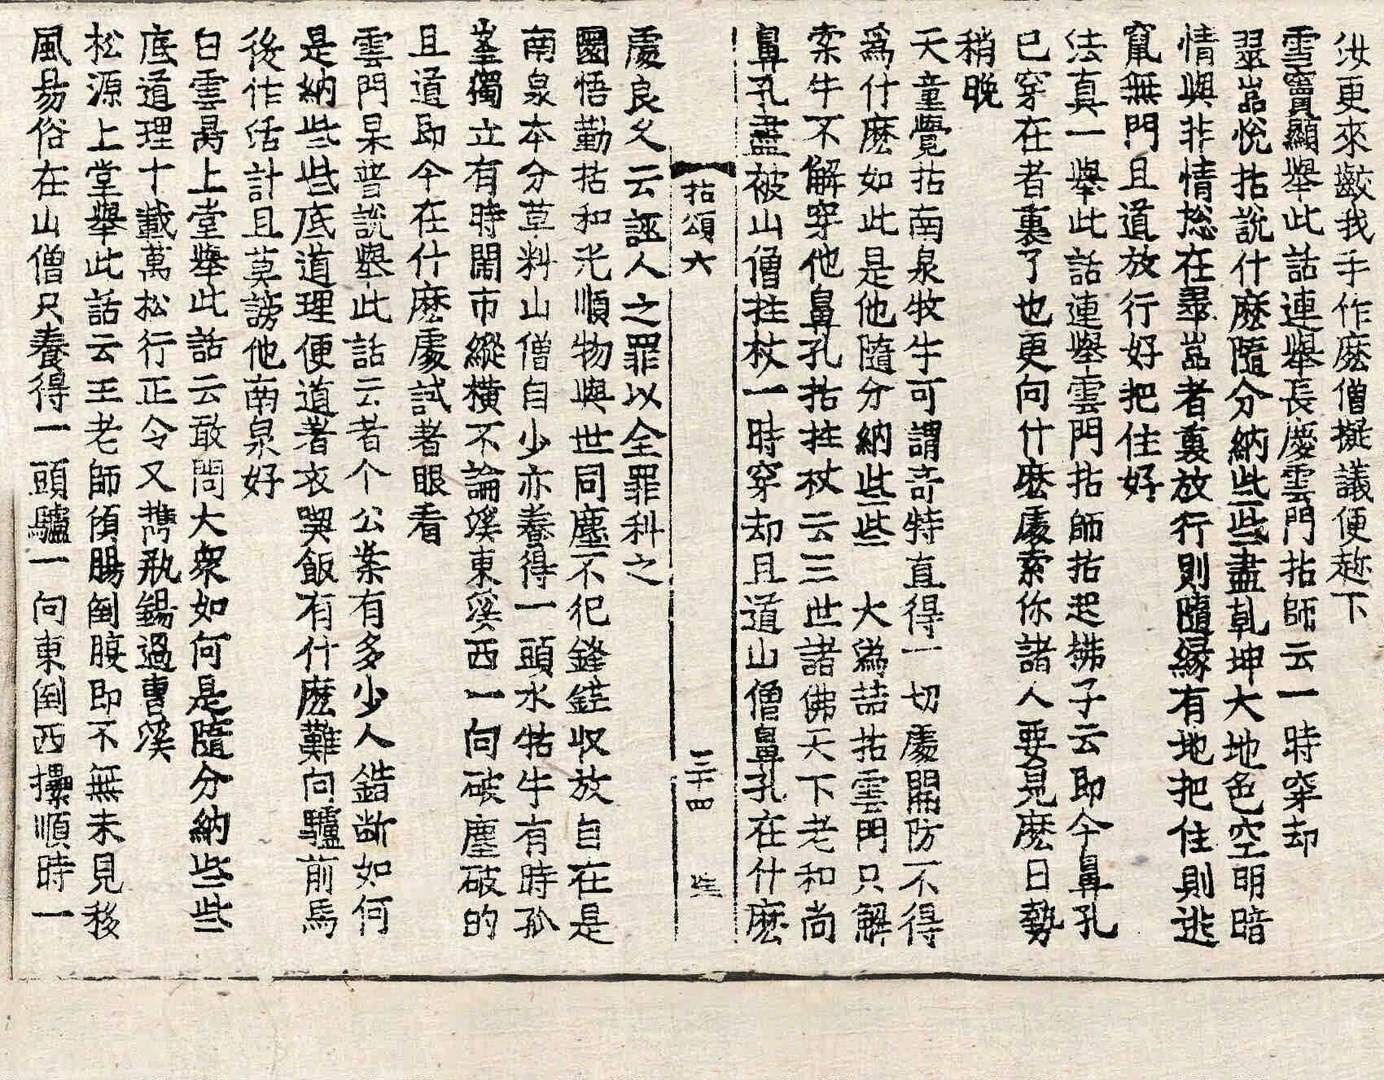 汝更來齩我手作麽僧擬議便趂下
雪竇顯擧此話連擧長慶雲門拈師云一時穿却
翠嵓悅拈說什麽隨分納些些盡乹坤大地色空明暗
情與非情㧾在翠嵓者裏放行則隨縁有地把住則逃
竄無門且道放行好把住好
法真一擧此話連擧雲門拈師拈起拂子云即今鼻孔
已穿在者裏了也更向什麽處索你諸人要見麽日勢
稍晚
天童覺拈南泉牧牛可謂竒特直得一切處關防不得
為什麽如此是他隨分納些些　大潙喆拈雲門只解
索牛不解穿他鼻孔拈拄杖云三世諸佛天下老和尚
鼻孔盡被山僧拄杖一時穿却且道山僧鼻孔在什麽
拈頌六　三十四
處良久云誣人之罪以全罪科之
圜悟勤拈和光順物與世同塵不犯鋒鋩収放自在是
南泉本分草料山僧自少亦養得一頭水牯牛有時孤
峯獨立有時閙市縱橫不論溪東溪西一向破塵破的
且道即今在什麽處試著眼看
雲門杲普說擧此話云者个公案有多少人錯斷如何
是納些些底道理便道著衣喫飯有什麽難向驢前馬
後作活計且莫謗他南泉好
白雲昺上堂擧此話云敢問大衆如何是隨分納些些
底道理十載萬松行正令又携瓶錫過曺溪
松源上堂擧此話云王老師傾膓倒腹即不無未見移
風易俗在山僧只養得一頭驢一向東倒西㩧順時一